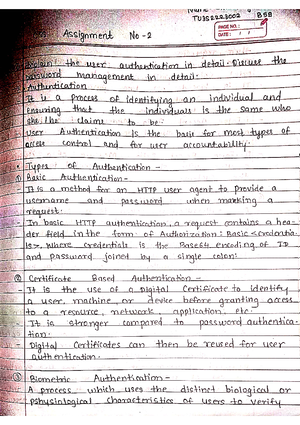 TU3S2223002 B58
Assignment No - 2
PAGE NO.:
DATE: / /
Explain the user authentication in detail. Discuss the
password management in detail.
Authentication
It is a process of identifying an individual and
Ensuring that the individuals is the same who
she/he claims to be.
User Authentication is the basis for most types of
access control and for user accountability.
Types of Authentication -
① Basic Authentication-
It is a method for an HTTP user agent to provide a
username and password when marking a
request.
In basic HTTP authentication, a request contains a hea-
der field in the form of Authorization: Basic <credentia-
ls>, where credentials is the Base64 encoding of ID
and password joined by a single colon:
② Certificate Based Authentication -
- It is the use of a Digital Certificate to identify
a user, machine, or device before granting access
to a resource, network, application, etc.
- It is stronger compared to password authentica-
tion.
- Digital Certificates can then be reused for user
authentication.
③ Biometric Authentication-
A process which uses the distinct biological or
pshysiological characteristics of users to verify